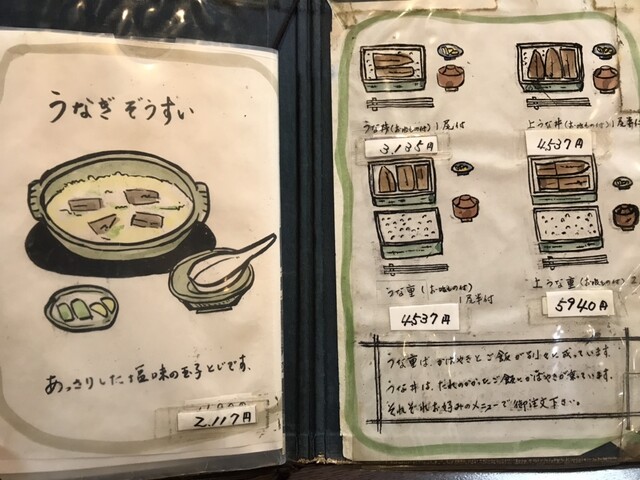 うなぎぞうすい
あっさりした塩味の玉子とじです。
2,117円
うな丼(お吸もの付)1尾付
3,135円
上うな丼(お吸もの付)1尾半付
4,537円
うな重(お吸もの付)
1尾半付
4537円
上うな重(お吸もの付)
5940円
うな重は、かばやきとご飯が別々に成っています。
うな丼は、たれのかかったご飯にかばやきが乗っています。
それぞれお好みのメニューで御注文下さい。